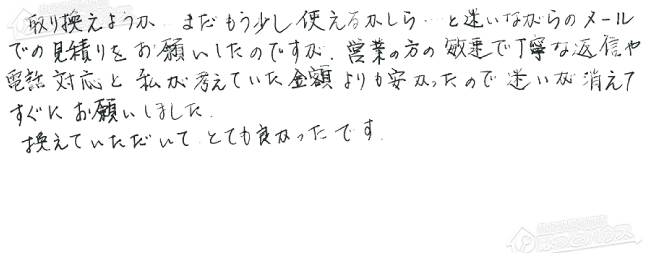 取り換えようか…まだもう少し使えるかしら…と迷いながらのメール
での見積りをお願いしたのですが、営業の方の敏速で丁寧な返信や
電話対応と私が考えていた金額よりも安かったので迷いが消えて
すぐにお願いしました。
換えていただいてとても良かったです。